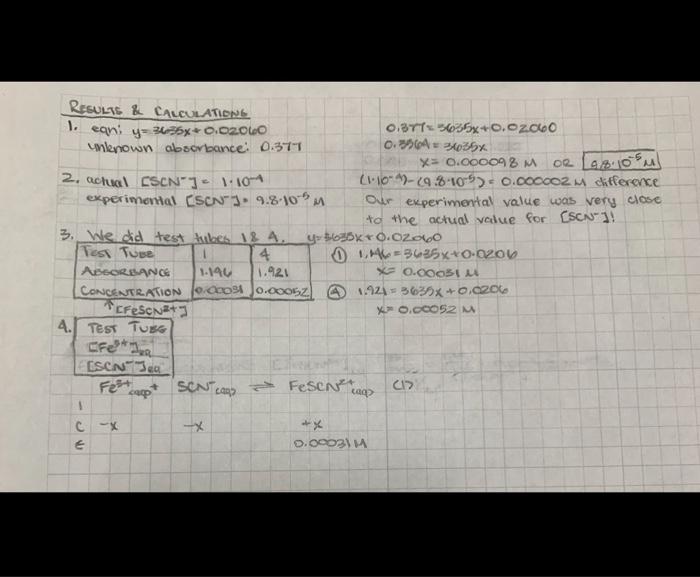 RESULTS & CALCULATIONS
1. eqn: y=3635x+0.02060
unknown absorbance: 0.377
0.377=3635x+0.02060
0.3564=3635x
x=0.000098 M OR 9.8·10⁻⁵ M
2. actual [SCN⁻]= 1·10⁻⁴
experimental [SCN⁻]= 9.8·10⁻⁵ M
(1·10⁻⁴)-(9.8·10⁻⁵)=0.000002 M difference
Our experimental value was very close
to the actual value for [SCN⁻]!
3. We did test tubes 1 & 4. y=3635x+0.02060
TEST TUBE 1 4
ABSORBANCE 1.146 1.921
CONCENTRATION 0.00031 0.00052
↑[FeSCN²⁺]
① 1.146=3635x+0.0206
x= 0.00031 M
④ 1.921=3635x+0.0206
x= 0.00052 M
4. TEST TUBE
[Fe³⁺]eq
[SCN⁻]eq
Fe³⁺(aq) + SCN⁻(aq) ⇌ FeSCN²⁺(aq) (1)
I
C -x -x +x
E 0.00031 M